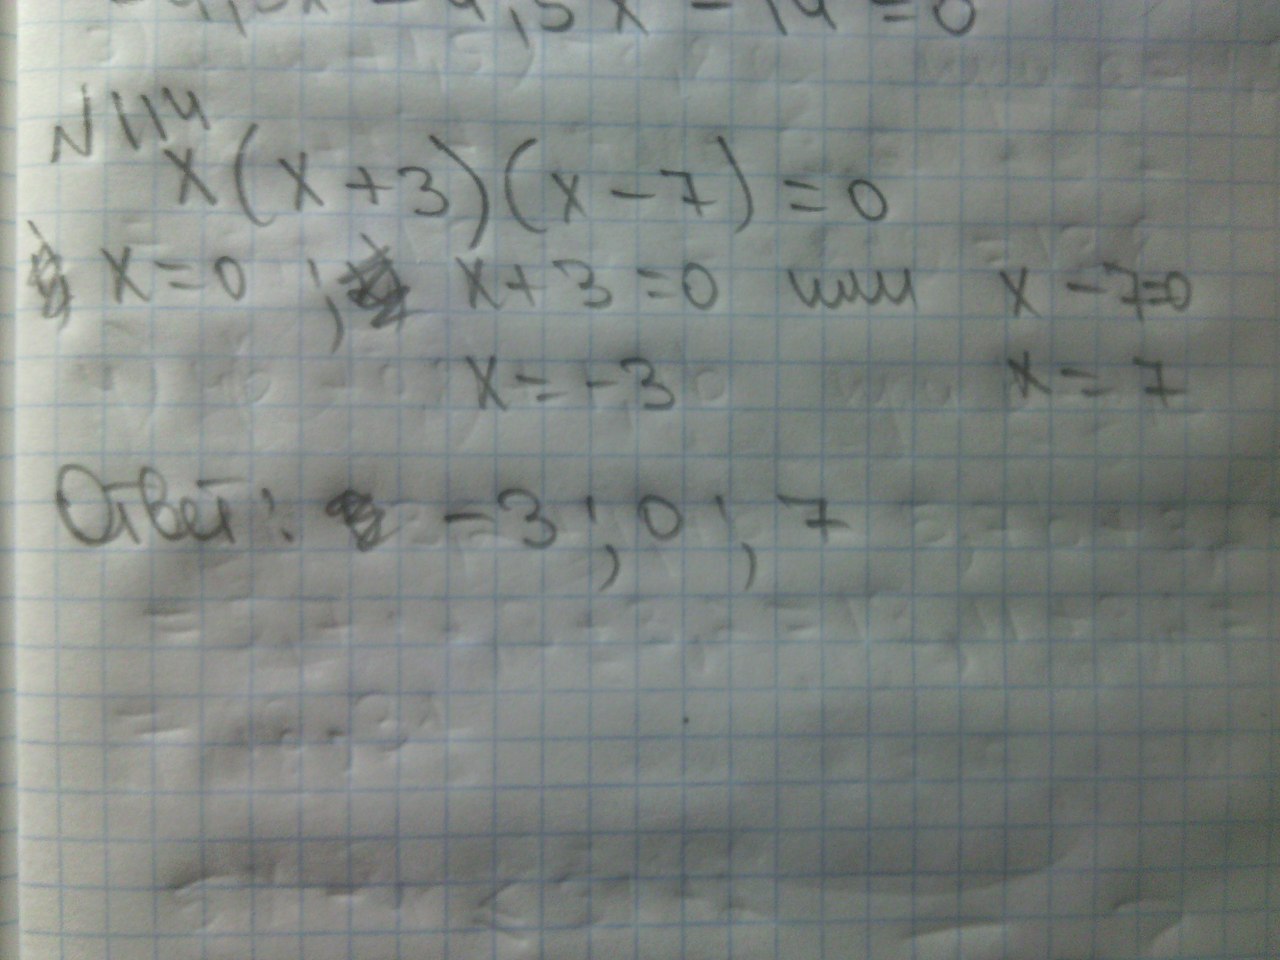 5x - 14 = 0
N 114
x(x+3)(x-7)=0
x=0 ; x+3=0 или x-7=0
x=-3 x=7
Ответ: -3; 0; 7